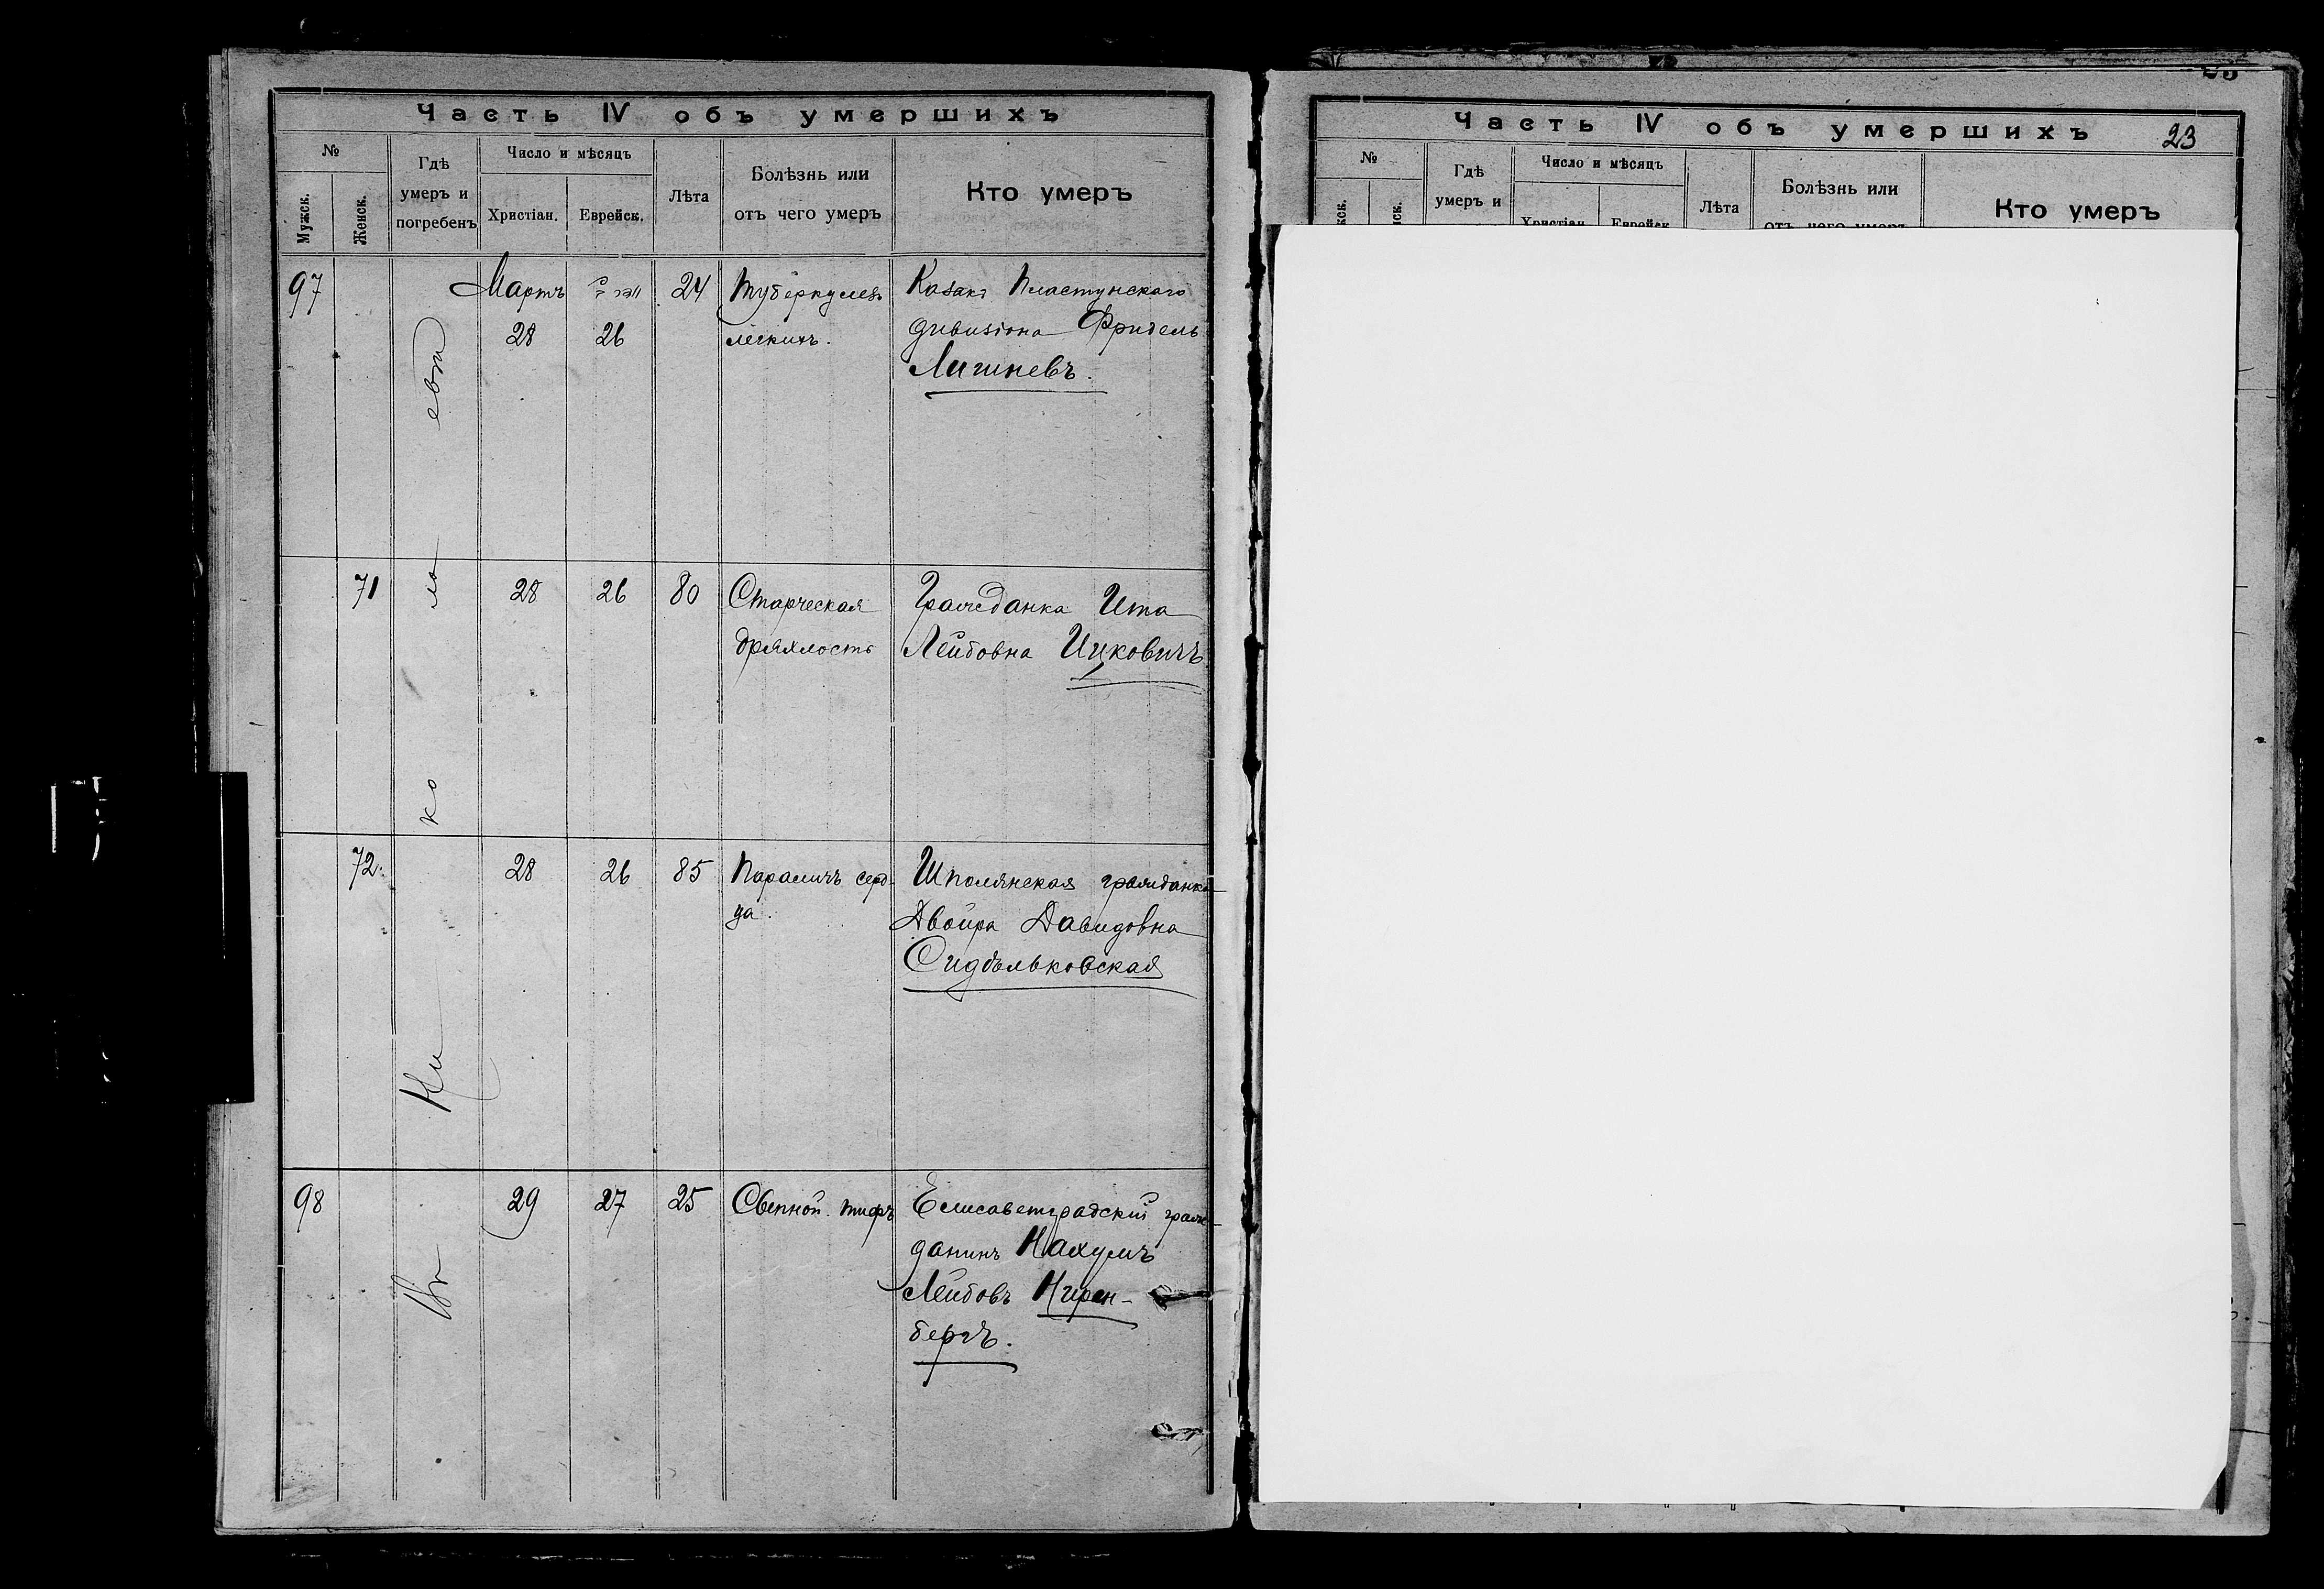 Часть IV объ умершихъ
№
Мужск.
Женск.
Гдѣ
умеръ и
погребенъ
Число и мѣсяцъ
Христіан.
Еврейск.
Лѣта
Болѣзнь или
отъ чего умеръ
Кто умеръ
Въ Николаевѣ
97
Мартъ
28
26
24
Туберкулезъ
легкихъ.
Казакъ Пластунскаго
дивизіона Фридель
71
28
26
80
Старческая
дряхлость
Гражданка Ита
Лейбовна Ицковичъ
72
28
26
85
Параличъ серд-
ца.
Шполянская гражданка
Двойра Давидовна
98
29
27
25
Сыпной тифъ
Елисаветградскій граж-
данинъ Нахумъ
Лейбовъ Нирен-
бергъ.
Часть IV объ умершихъ
23
№
Гдѣ
умеръ и
Число и мѣсяцъ
Христіан.
Еврейск.
Лѣта
Болѣзнь или
отъ чего умеръ
Кто умеръ